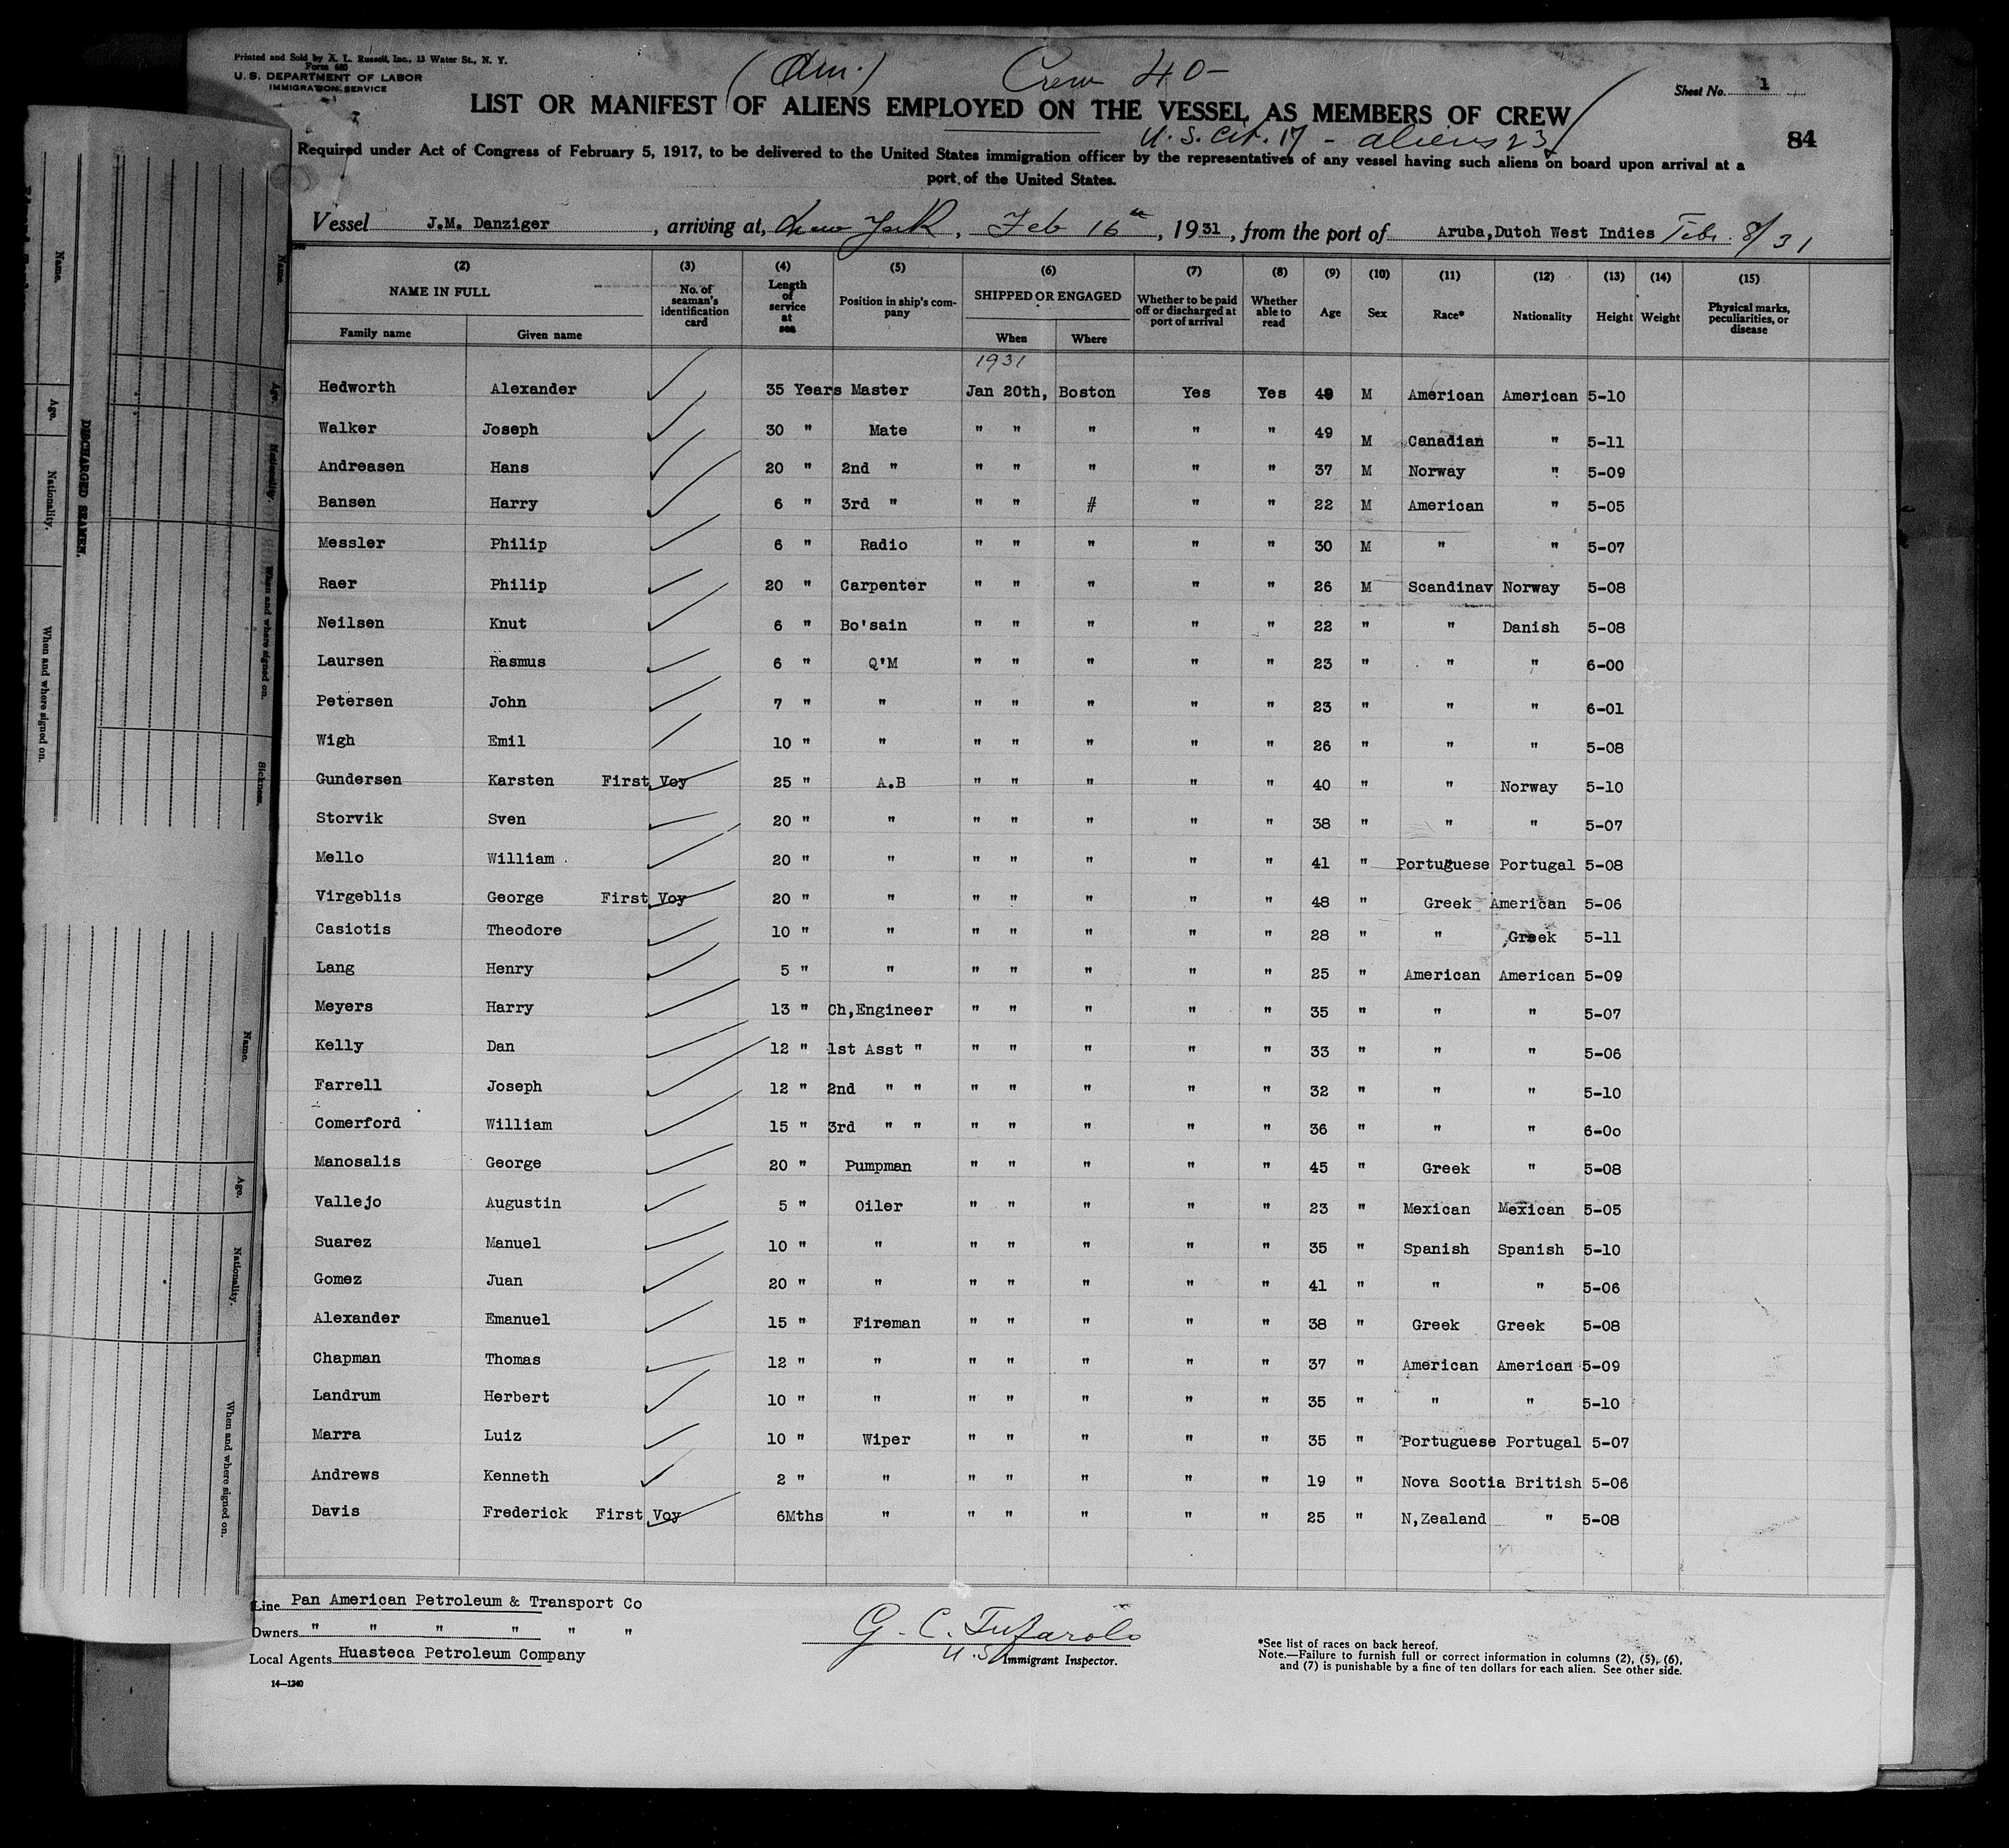 Printed and Sold by A. L. Russell, Inc., 13 Water St., N. Y.
Form 680
U. S. DEPARTMENT OF LABOR
IMMIGRATION SERVICE
Crew 40-
Sheet No. 1
LIST OR MANIFEST OF ALIENS EMPLOYED ON THE VESSEL AS MEMBERS OF CREW
U.S. Cit. 17 - aliens 23
84
Required under Act of Congress of February 5, 1917, to be delivered to the United States immigration officer by the representatives of any vessel having such aliens on board upon arrival at a
port of the United States.
Vessel J.M. Danziger, arriving at, New York, Feb 16th, 1931, from the port of Aruba,Dutch West Indies Feb. 8/31
(2) (3) (4) (5) (6) (7) (8) (9) (10) (11) (12) (13) (14) (15)
NAME IN FULL No. of seaman's identification card Length of service at sea Position in ship's company SHIPPED OR ENGAGED Whether to be paid off or discharged at port of arrival Whether able to read Age Sex Race* Nationality Height Weight Physical marks, peculiarities, or disease
Family name Given name When Where
1931
Hedworth Alexander 35 Years Master Jan 20th, Boston Yes Yes 49 M American American 5-10
Walker Joseph 30 " Mate " " " " " 49 M Canadian " 5-11
Andreasen Hans 20 " 2nd " " " " " " 37 M Norway " 5-09
Bansen Harry 6 " 3rd " " " # " " 22 M American " 5-05
Messler Philip 6 " Radio " " " " " 30 M " " 5-07
Raer Philip 20 " Carpenter " " " " " 26 M Scandinav Norway 5-08
Neilsen Knut 6 " Bo'sain " " " " " 22 " " Danish 5-08
Laursen Rasmus 6 " Q'M " " " " " 23 " " " 6-00
Petersen John 7 " " " " " " " 23 " " " 6-01
Wigh Emil 10 " " " " " " " 26 " " " 5-08
Gundersen Karsten First Voy 25 " A.B " " " " " 40 " " Norway 5-10
Storvik Sven 20 " " " " " " " 38 " " " 5-07
Mello William 20 " " " " " " " 41 " Portuguese Portugal 5-08
Virgeblis George First Voy 20 " " " " " " " 48 " Greek American 5-06
Casiotis Theodore 10 " " " " " " " 28 " " Greek 5-11
Lang Henry 5 " " " " " " " 25 " American American 5-09
Meyers Harry 13 " Ch,Engineer " " " " " 35 " " " 5-07
Kelly Dan 12 " 1st Asst " " " " " " 33 " " " 5-06
Farrell Joseph 12 " 2nd " " " " " " " 32 " " " 5-10
Comerford William 15 " 3rd " " " " " " " 36 " " " 6-0o
Manosalis George 20 " Pumpman " " " " " 45 " Greek " 5-08
Vallejo Augustin 5 " Oiler " " " " " 23 " Mexican Mexican 5-05
Suarez Manuel 10 " " " " " " " 35 " Spanish Spanish 5-10
Gomez Juan 20 " " " " " " " 41 " " " 5-06
Alexander Emanuel 15 " Fireman " " " " " 38 " Greek Greek 5-08
Chapman Thomas 12 " " " " " " " 37 " American American 5-09
Landrum Herbert 10 " " " " " " " 35 " " " 5-10
Marra Luiz 10 " Wiper " " " " " 35 " Portuguese Portugal 5-07
Andrews Kenneth 2 " " " " " " " 19 " Nova Scotia British 5-06
Davis Frederick First Voy 6Mths " " " " " " 25 " N,Zealand " 5-08
Line Pan American Petroleum & Transport Co
Owners " " " " " "
Local Agents Huasteca Petroleum Company
14—1240
G. C. Tufarolo
U.S. Immigrant Inspector.
*See list of races on back hereof.
Note.—Failure to furnish full or correct information in columns (2), (5), (6),
and (7) is punishable by a fine of ten dollars for each alien. See other side.
DISCHARGED SEAMEN.
Name.
Age.
Nationality.
When and where signed on.
Name.
Age.
Nationality.
When and where signed on.
Sickness.
Name.
Age.
Nationality.
When and where signed on.